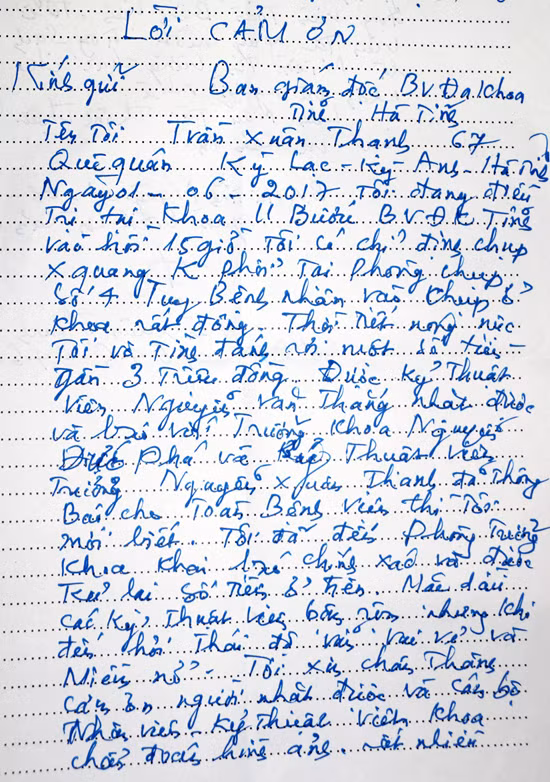 LỜI CẢM ƠN
Kính gửi Ban giám đốc B.V. Đa khoa
Tỉnh Hà Tĩnh
Tên Tôi Trần Xuân Thanh 67
Quê quán Kỳ Lạc - Kỳ Anh - Hà Tĩnh
Ngày 01 - 06 - 2017 Tôi đang điều
Trị tại Khoa U Bướu B.V.Đ.K Tỉnh
vào hồi 15 giờ Tôi có chỉ định chụp
X quang K phổi Tại phòng chụp
Số 4 Tuy Bệnh nhân vào chụp ở
khoa rất đông. Thời tiết nóng nực
Tôi vô Tình đánh rơi một số tiền
gần 3 Triệu đồng Được Kỹ Thuật
viên Nguyễn Văn Thắng nhặt được
và báo với Trưởng Khoa Nguyễn
Phá và Thuật viên
Trưởng Nguyễn Xuân Thanh đã Thông
Báo cho Toàn Bệnh viện thì Tôi
mới biết. Tôi đã đến Phòng Trưởng
Khoa Khai báo chính xác và được
lại số tiền ở trên. Mặc dầu
các Kỹ Thuật viên bận rộn nhưng khi
đến hỏi Thái độ vẫn vui vẻ và
Niềm nở - Tôi xin chân Thành
cảm ơn người nhặt được và cán bộ
Nhân viên - Kỹ Thuật viên khoa
chẩn đoán hình ảnh rất nhiều